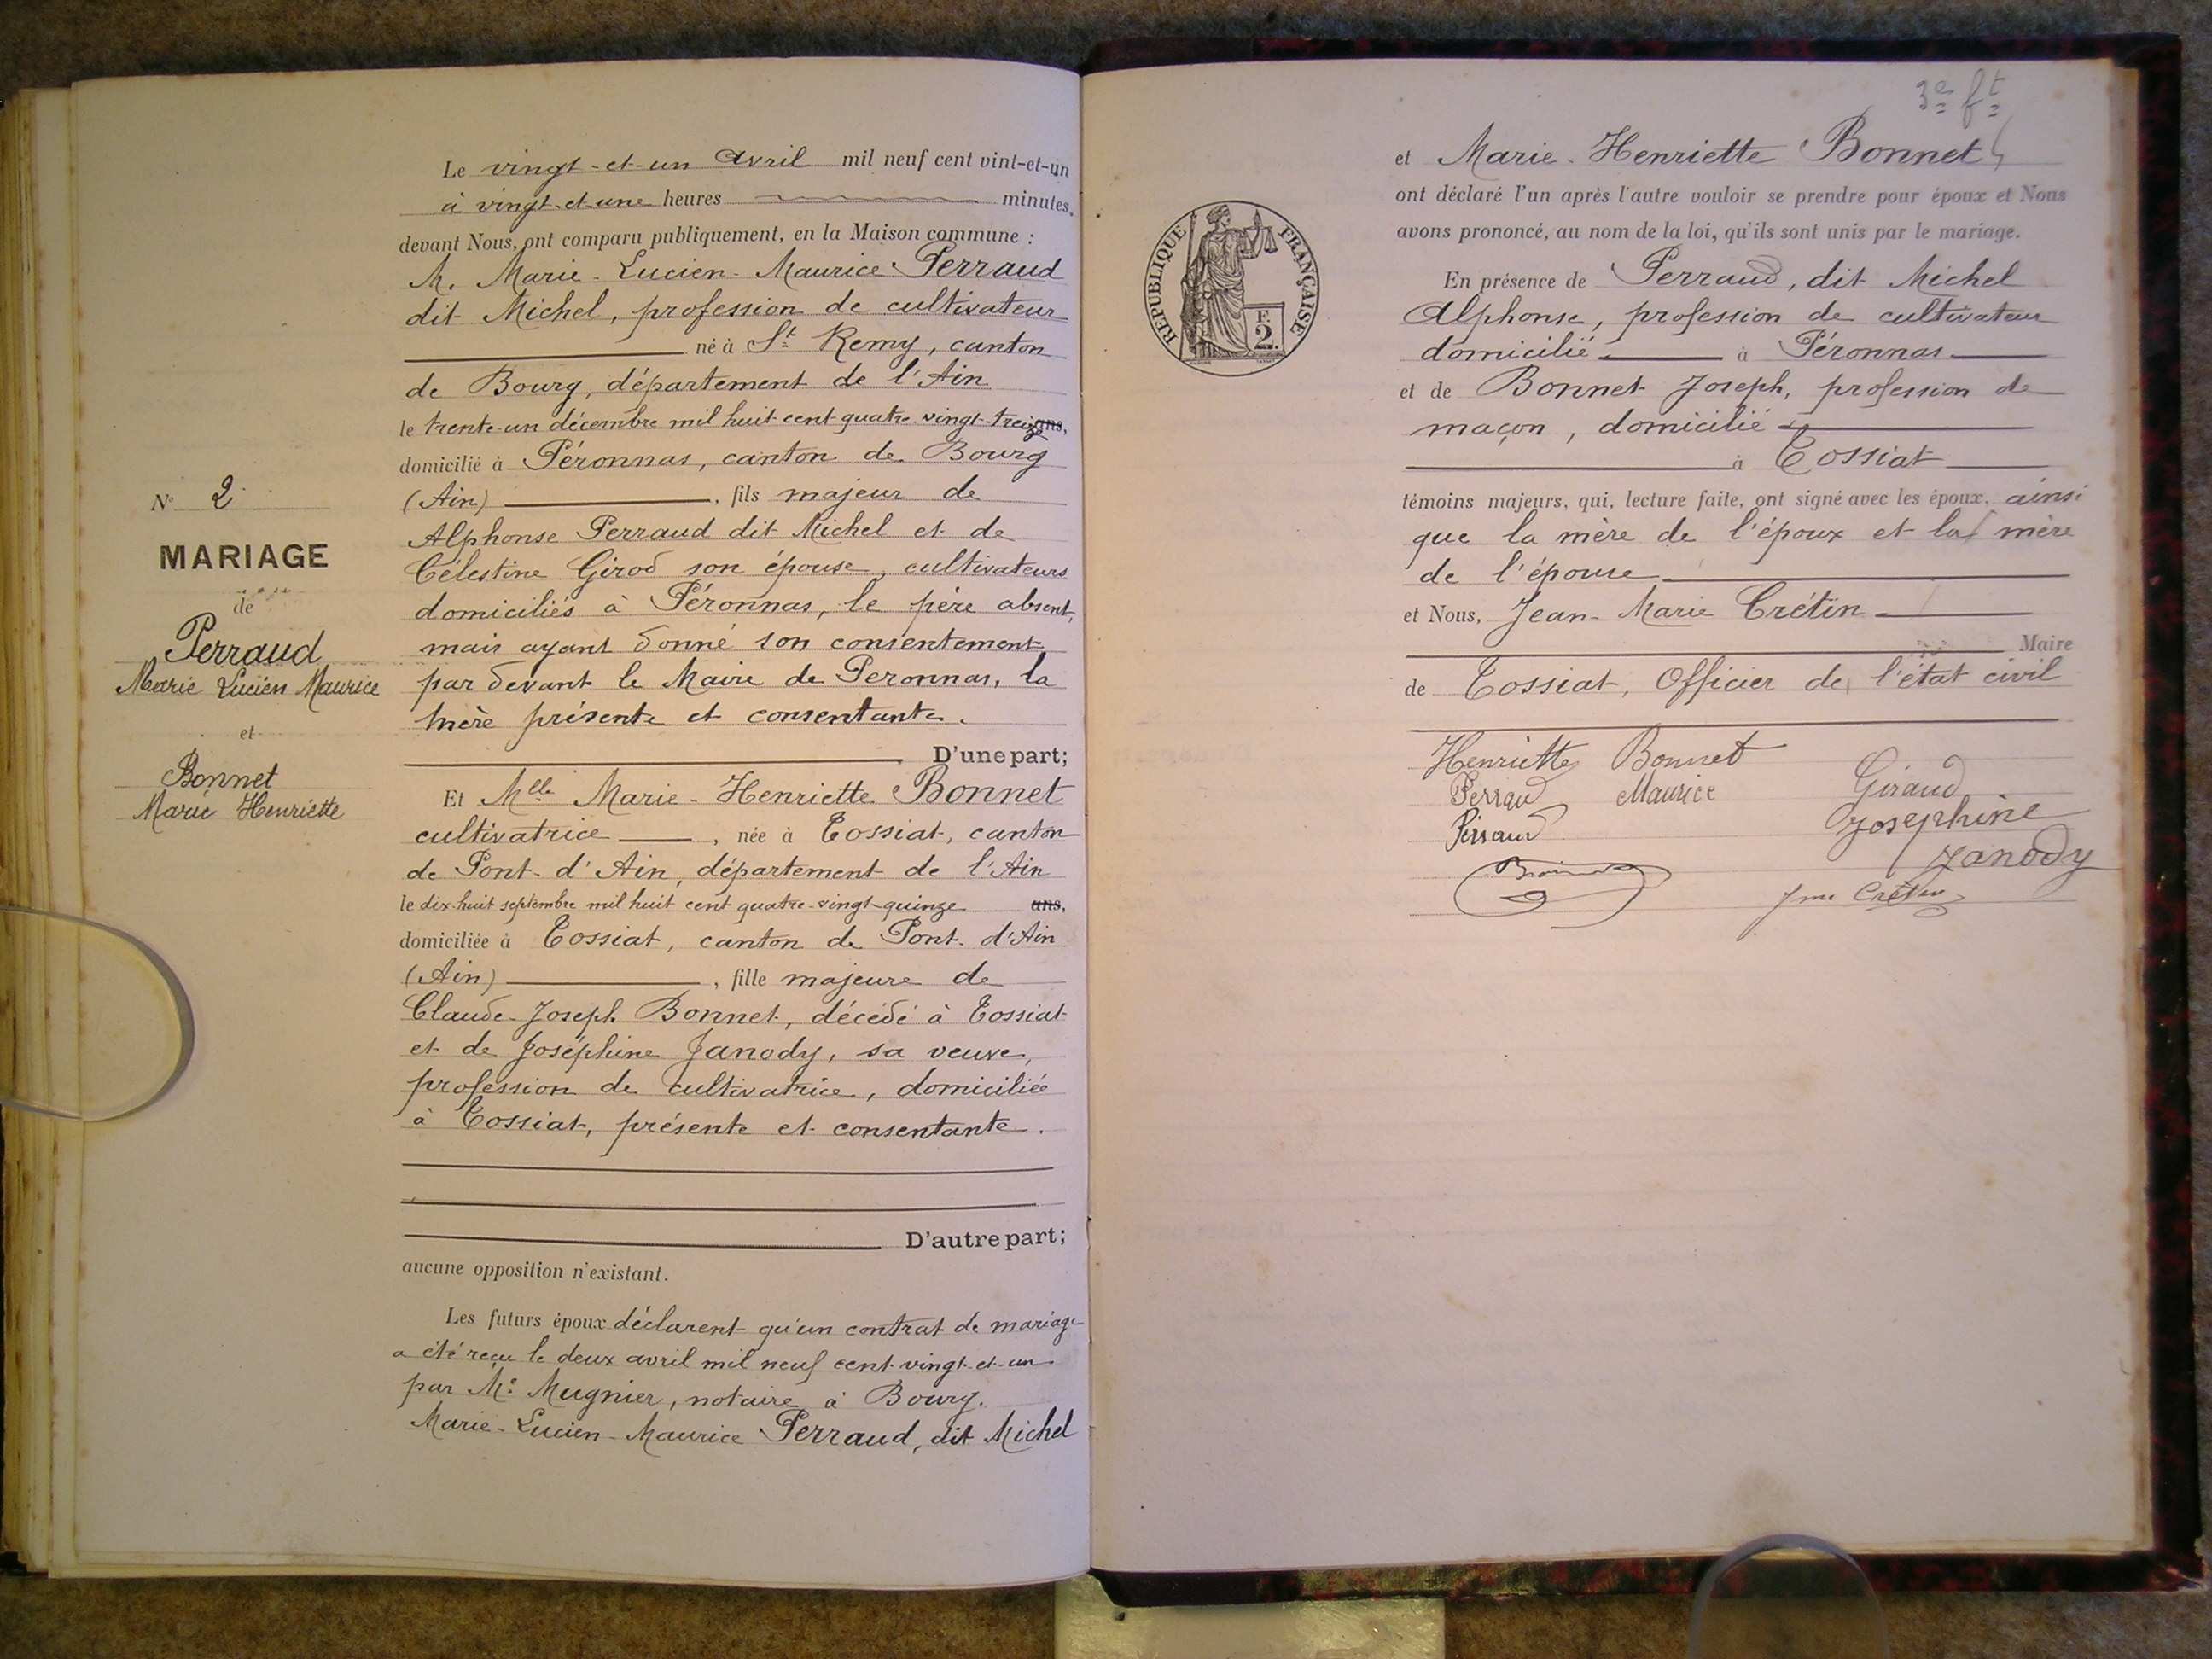 N° 2
MARIAGE
de
Perraud
Marie Lucien Maurice
et
Bonnet
Marie Henriette
Le vingt-et-un Avril mil neuf cent vint-et-un
à vingt-et-une heures minutes.
devant Nous, ont comparu publiquement, en la Maison commune :
M. Marie-Lucien-Maurice Perraud
dit Michel, profession de cultivateur
né à St Remy, canton
de Bourg, département de l'Ain
le trente-un décembre mil huit cent quatre-vingt-treize ans,
domicilié à Péronnas, canton de Bourg
(Ain), fils majeur de
Alphonse Perraud dit Michel et de
Célestine Girod son épouse, cultivateurs
domiciliés à Péronnas, le père absent,
mais ayant donné son consentement
par devant le Maire de Peronnas, la
mère présente et consentante.
D'une part;
Et Mlle Marie-Henriette Bonnet
cultivatrice, née à Tossiat, canton
de Pont-d'Ain, département de l'Ain
le dix-huit septembre mil huit cent quatre-vingt-quinze ans,
domiciliée à Tossiat, canton de Pont-d'Ain
(Ain), fille majeure de
Claude-Joseph Bonnet, décédé à Tossiat
et de Joséphine Janody, sa veuve,
profession de cultivatrice, domiciliée
à Tossiat, présente et consentante.
D'autre part;
aucune opposition n'existant.
Les futurs époux déclarent qu'un contrat de mariage
a été reçu le deux avril mil neuf cent vingt-et-un
par Me Mugnier, notaire à Bourg.
Marie-Lucien-Maurice Perraud, dit Michel
3e ft
RÉPUBLIQUE FRANÇAISE
F.
2.
et Marie-Henriette Bonnet
ont déclaré l'un après l'autre vouloir se prendre pour époux et Nous
avons prononcé, au nom de la loi, qu'ils sont unis par le mariage.
En présence de Perraud, dit Michel
Alphonse, profession de cultivateur
domicilié à Péronnas
et de Bonnet Joseph, profession de
maçon, domicilié
à Tossiat
témoins majeurs, qui, lecture faite, ont signé avec les époux, ainsi
que la mère de l'époux et la mère
de l'épouse
et Nous, Jean-Marie Crétin
Maire
de Tossiat, Officier de l'état civil
Henriette Bonnet
Perraud Maurice
Giraud
Perraud
Josephine
Janody
Jme Crétin